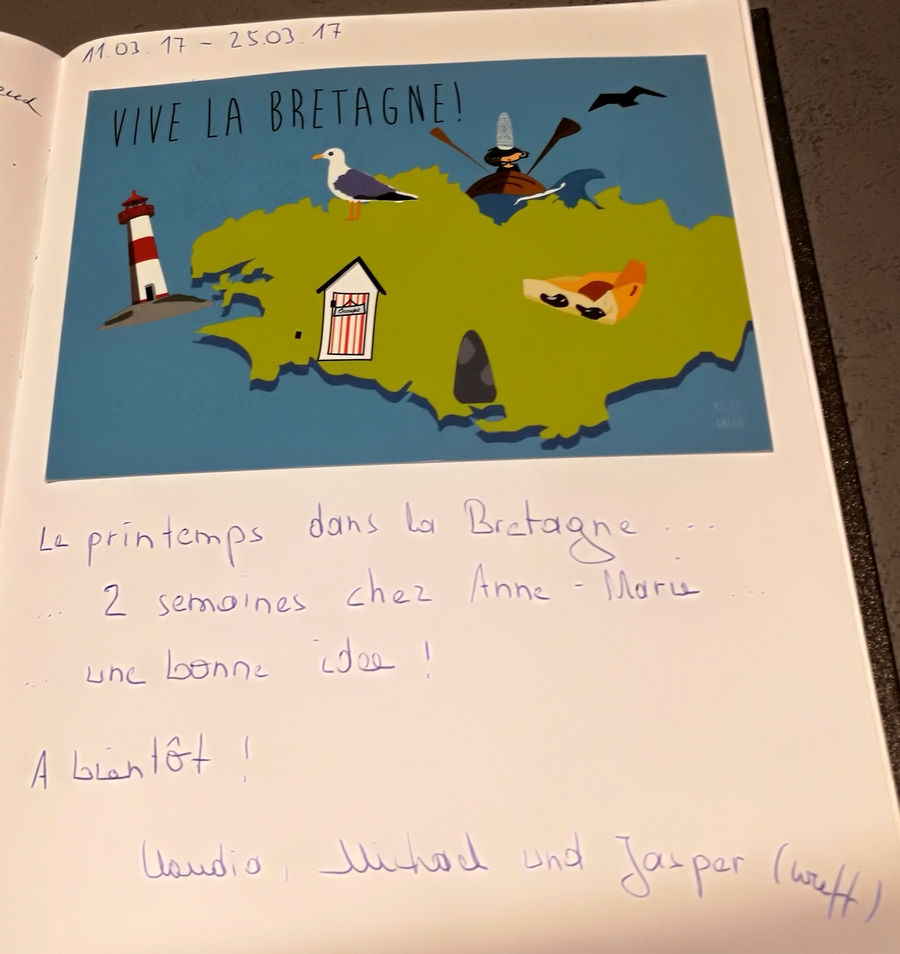 11.03.17 - 25.03.17
VIVE LA BRETAGNE!
Occupé
Le printemps dans la Bretagne ...
... 2 semaines chez Anne-Marie ...
... une bonne idee !
A bientôt !
Claudia, Michael und Jasper (wuff)